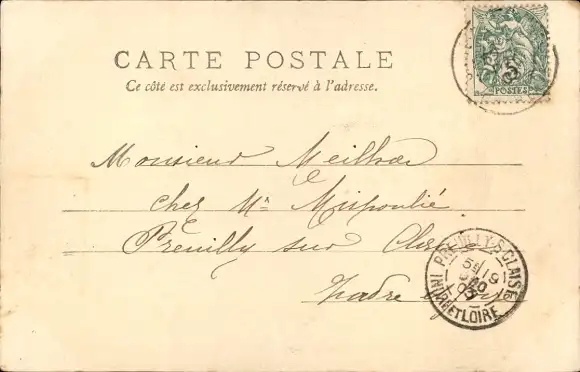 CARTE POSTALE
Ce côté est exclusivement réservé à l'adresse.
POSTES
5
Monsieur
chez Mr Mispoulié
Preuilly sur Claise
Indre et Loire
PREUILLY-S-CLAISE
INDRE ET LOIRE